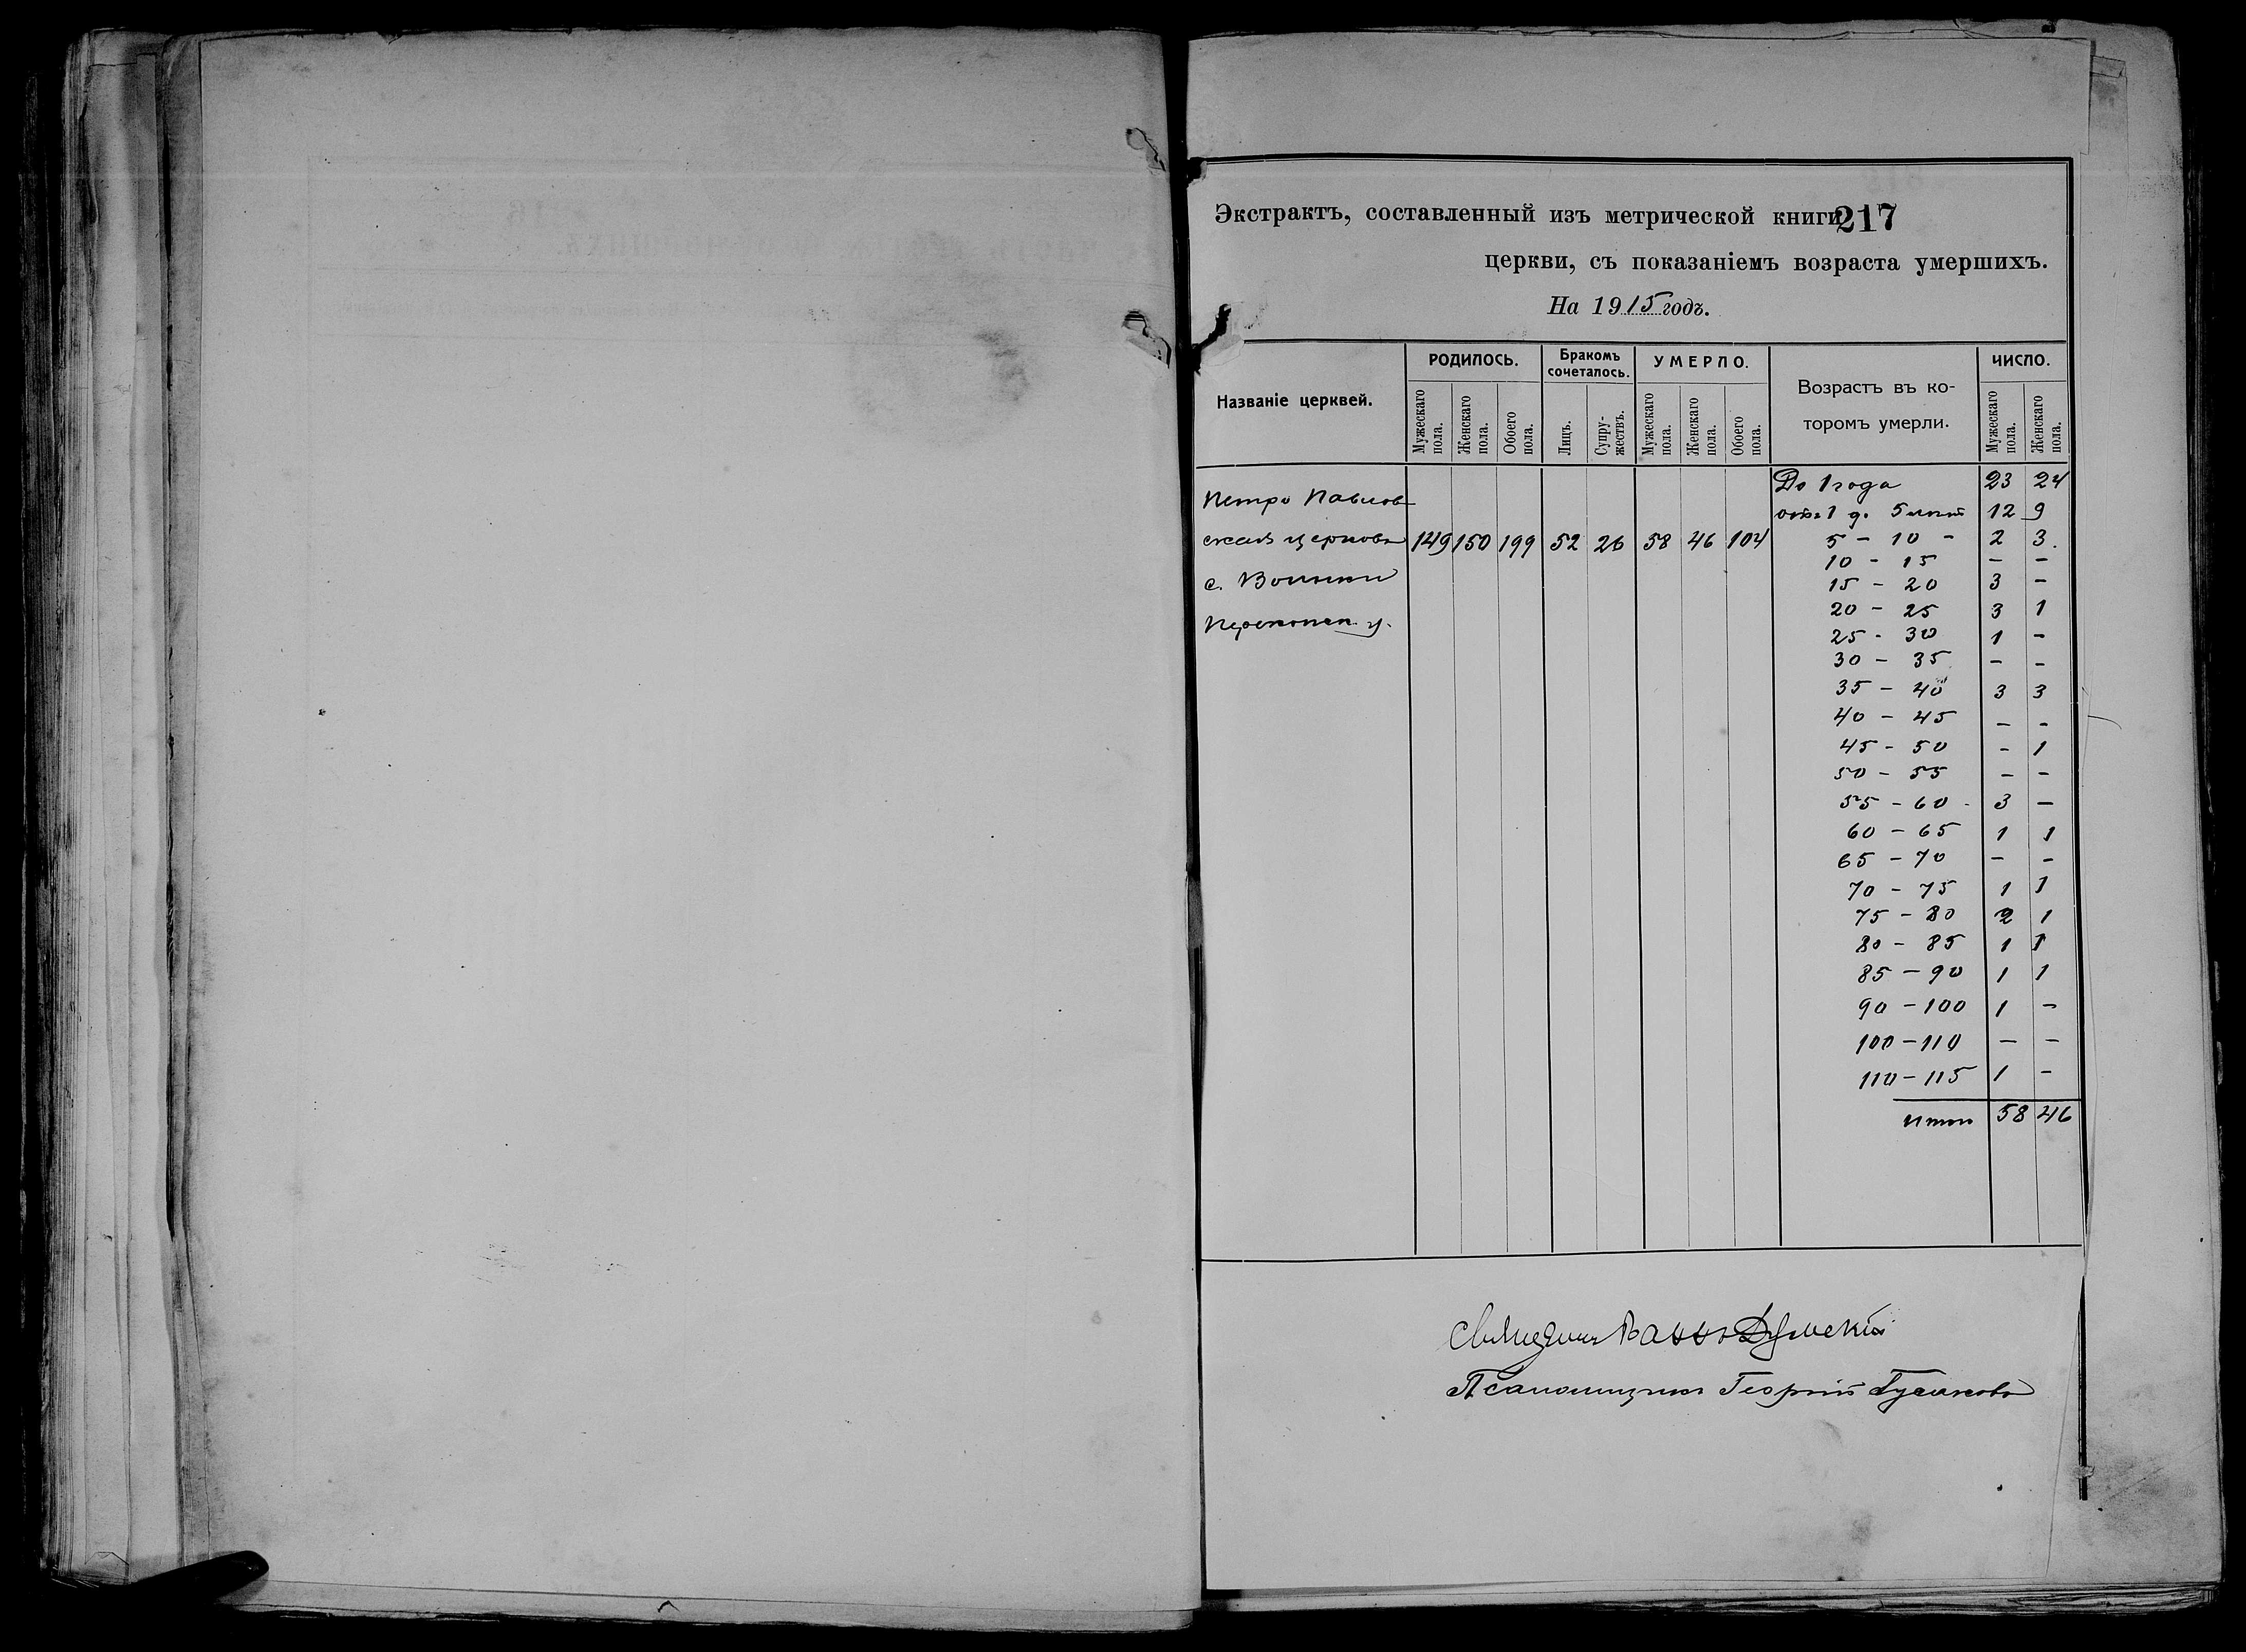 Экстрактъ, составленный изъ метрической книги
217
церкви, съ показаніемъ возраста умершихъ.
На 1915 годъ.
Названіе церквей.
РОДИЛОСЬ.
Мужескаго пола.
Женскаго пола.
Обоего пола.
Бракомъ сочеталось.
Лицъ.
Супру-жествъ.
УМЕРЛО.
Мужескаго пола.
Женскаго пола.
Обоего пола.
Возрастъ въ ко-
торомъ умерли.
ЧИСЛО.
Мужескаго пола.
Женскаго пола.
Петро Павлов
ская церковь 149 150 199 52 26 58 46 104
с. Воинки
Перекопск. у.
До 1 года 23 24
отъ 1 д. 5 лѣтъ 12 9
5 - 10 - 2 3.
10 - 15 - -
15 - 20 3 -
20 - 25 3 1
25 - 30 1 -
30 - 35 - -
35 - 40 3 3
40 - 45 - -
45 - 50 - 1
50 - 55 - -
55 - 60 - 3 -
60 - 65 1 1
65 - 70 - -
70 - 75 1 1
75 - 80 2 1
80 - 85 1 1
85 - 90 1 1
90 - 100 1 -
100 - 110 - -
110 - 115 1 -
Итого 58 46
Псаломщикъ Георгій Гусаковъ